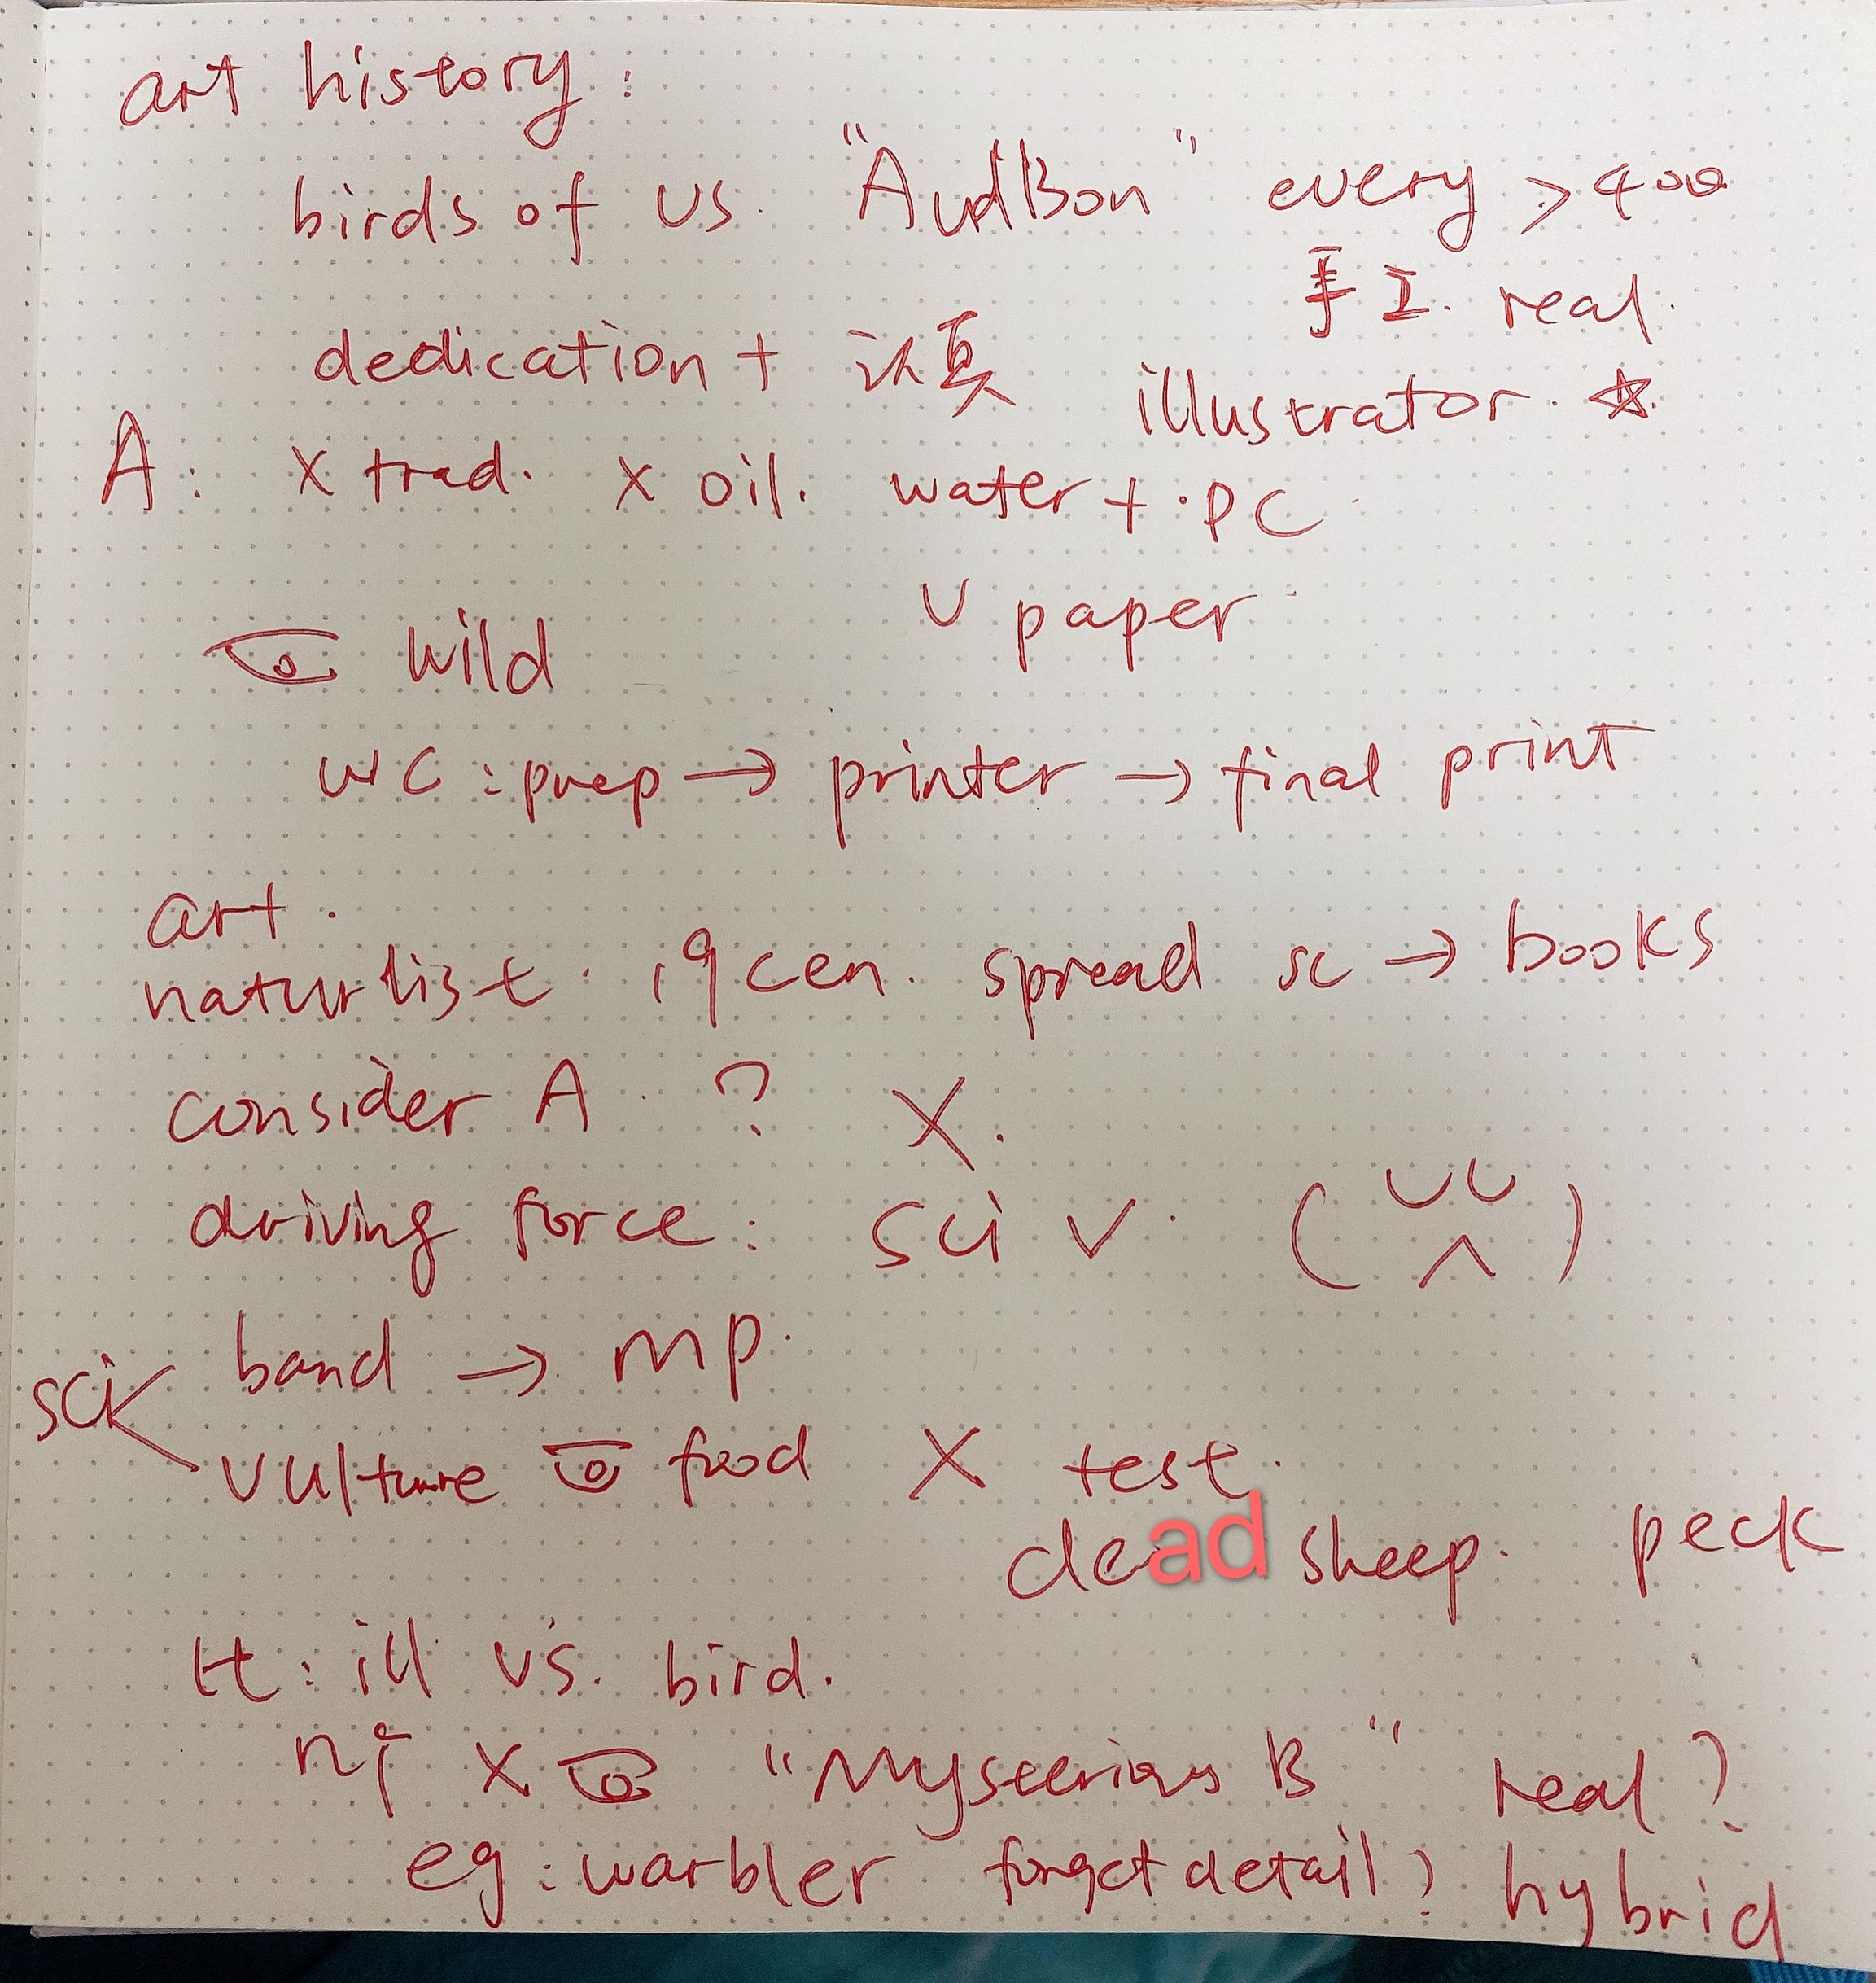 art history:
birds of US. "AudBon" every > 400
手工. real.
dedication + 认真
illustrator ☆
A: X trad. X oil. water + PC
V paper
wild
WC: prep → printer → final print
art.
naturlist. 19 cen. spread sc → books
consider A ? X.
driving force: sci V. (
sci
band → mp.
vulture food X test.
dead sheep. peck
H: ill vs. bird.
X "Mysterious B" real?
eg: warbler forget detail? hybrid